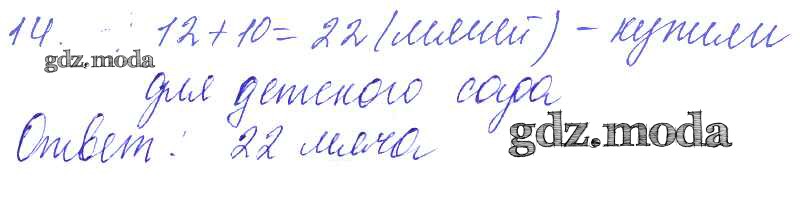 14. 12+10=22 (мячей) - купили
gdz.moda
для детского сада
Ответ: 22 мяча
gdz.moda